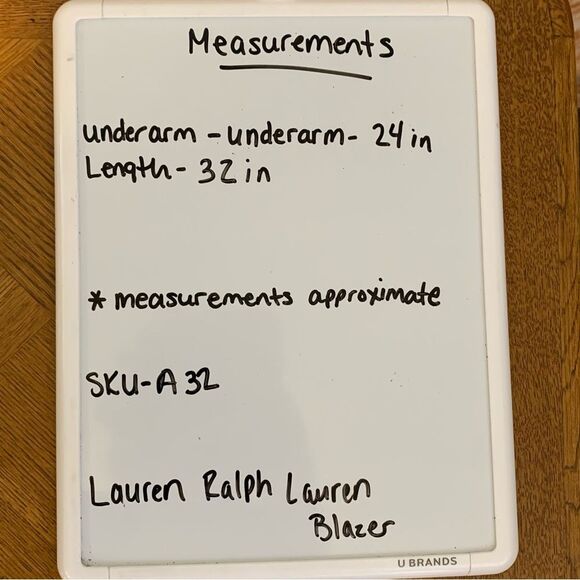 Measurements
underarm - underarm - 24 in
Length - 32 in
* measurements approximate
SKU-A 32
Lauren Ralph Lauren
Blazer
U BRANDS